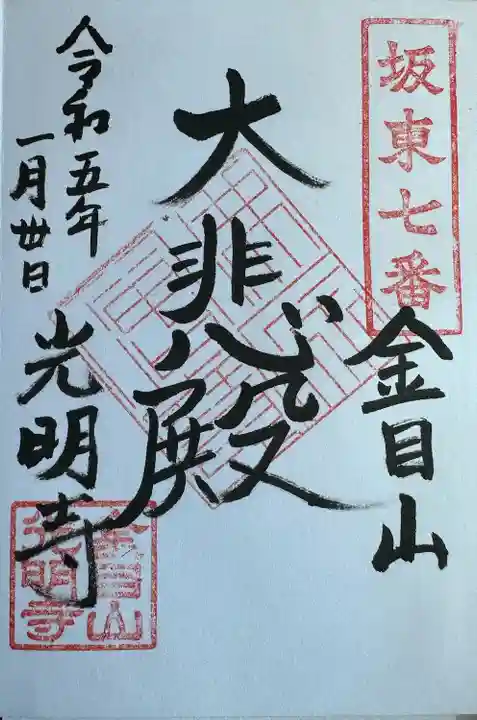 坂東七番
金目山
大悲殿
令和五年
一月丗日
光明寺
金目山
光明寺